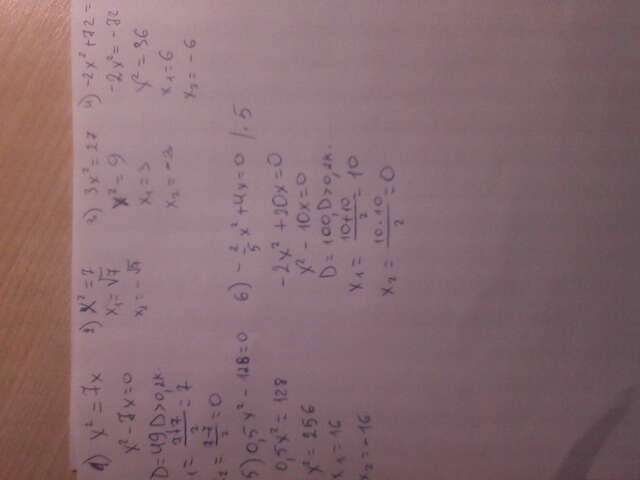 1) x² = 7x
x² - 7x = 0
D = 49, D > 0, 2к.
1 = 7+7/2 = 7
2 = 7-7/2 = 0
2) x² = 7
x₁ = √7
x₂ = -√7
3) 3x² = 27
x² = 9
x₁ = 3
x₂ = -3
4) -2x² + 72 =
-2x² = -72
x² = 36
x₁ = 6
x₂ = -6
5) 0,5x² - 128 = 0
0,5x² = 128
x² = 256
x₁ = 16
x₂ = -16
6) -2/5x² + 4x = 0 /·5
-2x² + 20x = 0
x² - 10x = 0
D = 100, D > 0, 2к.
x₁ = 10+10/2 = 10
x₂ = 10-10/2 = 0